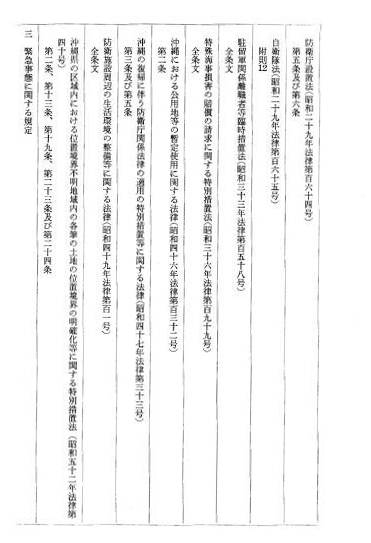 防衛庁設置法（昭和二十九年法律第百六十四号）
第五条及び第六条
自衛隊法（昭和二十九年法律第百六十五号）
附則12
駐留軍関係離職者等臨時措置法（昭和三十三年法律第百五十八号）
全条文
特殊海事損害の賠償の請求に関する特別措置法（昭和三十六年法律第百九十九号）
全条文
沖縄における公用地等の暫定使用に関する法律（昭和四十六年法律第百三十二号）
第二条
沖縄の復帰に伴う防衛庁関係法律の適用の特別措置等に関する法律（昭和四十七年法律第三十三号）
第三条及び第五条
防衛施設周辺の生活環境の整備等に関する法律（昭和四十九年法律第百一号）
全条文
沖縄県の区域内における位置境界不明地域内の各筆の土地の位置境界の明確化等に関する特別措置法（昭和五十二年法律第
四十号）
第二条、第十三条、第十九条、第二十三条及び第二十四条
三　緊急事態に関する規定